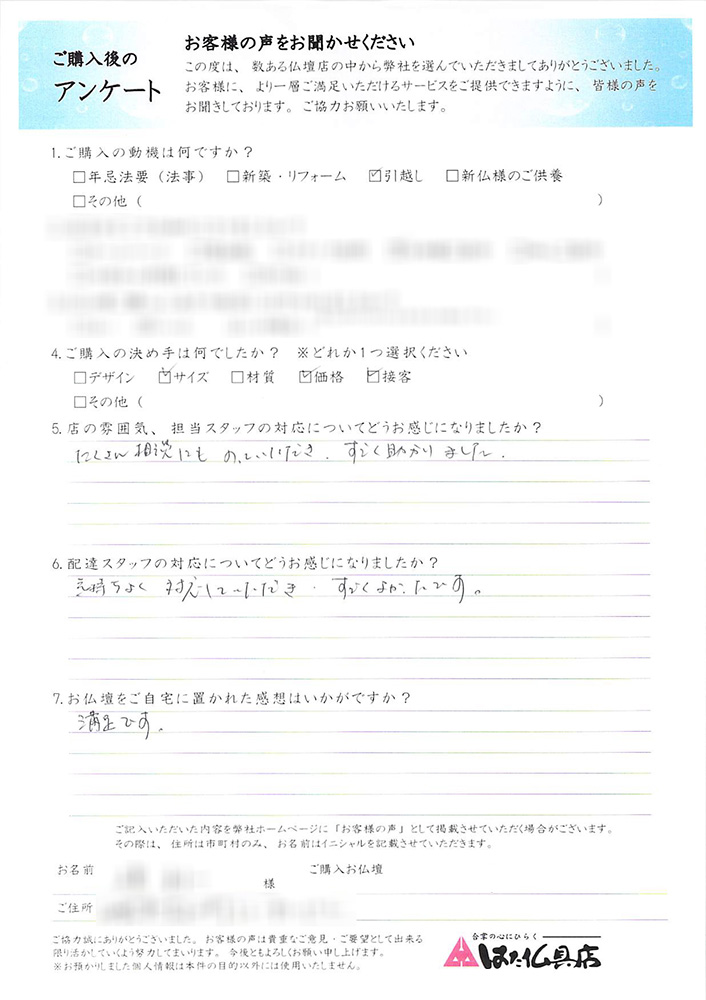 ご購入後の
アンケート
お客様の声をお聞かせください
この度は、数ある仏壇店の中から弊社を選んでいただきましてありがとうございました。
お客様に、より一層ご満足いただけるサービスをご提供できますように、皆様の声を
お聞きしております。ご協力お願いいたします。
1.ご購入の動機は何ですか？
□年忌法要（法事） □新築・リフォーム ☑引越し □新仏様のご供養
□その他（ ）
4.ご購入の決め手は何でしたか？ ※どれか1つ選択ください
□デザイン ☑サイズ □材質 ☑価格 ☑接客
□その他（ ）
5.店の雰囲気、担当スタッフの対応についてどうお感じになりましたか？
たくさん相談にものっていただき、すごく助かりました。
6.配達スタッフの対応についてどうお感じになりましたか？
気持ちよく対応していただき、すごくよかったです。
7.お仏壇をご自宅に置かれた感想はいかがですか？
満足です。
ご記入いただいた内容を弊社ホームページに「お客様の声」として掲載させていただく場合がございます。
その際は、住所は市町村のみ、お名前はイニシャルを記載させていただきます。
お名前 様 ご購入お仏壇
ご住所
ご協力誠にありがとうございました。お客様の声は貴重なご意見・ご要望として出来る
限り活かしていくよう努力してまいります。今後ともよろしくお願い申し上げます。
※お預かりしました個人情報は本件の目的以外には使用いたしません。
合掌の心にひらく
はた仏具店